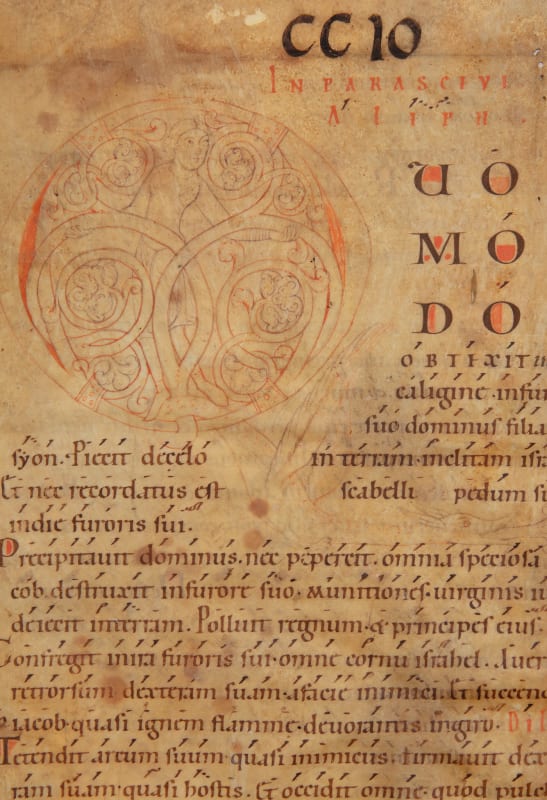 CC IO
IN PARASCIVI
ALIPH.
UO
MO
DO
OBTIXIT
caligine infu
suo dominus filia
syon. Piecit decelo in terram inclitam isra
Et nec recordatus est scabelli pedum su
indie furoris sui.
Precipitavit dominus. nec pepercit. omnia speciosa
cob. destruxit infurore suo. munitiones virginis
deiecit interram. Polluit regnum. & principes eius.
Confregit inira furoris sui omne cornu israhel. Auer
retrorsum dexteram suam. afacie inimici. Et succend
iacob. quasi ignem flamme devorantis ingiro.
Tetendit arcum suum quasi inimicus. firmavit dex
ram suam. quasi hostis. Et occidit omne. quod pulch